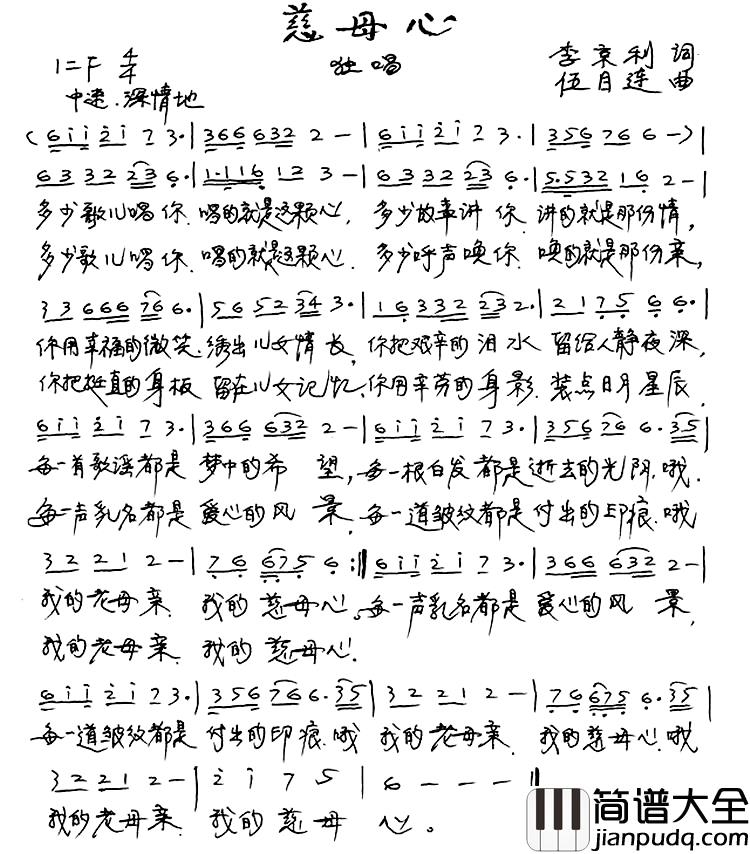 慈母心
1=F 4/4 独唱 李京利 词
中速.深情地 伍日连 曲
(6 i i 2 i 7 3.|3 6 6 6 3 2 2 -|6 i i 2 i 7 3.|3 5 6 7 6 6 -)|
6 3 3 2 2 3 6.|1.1 1 6 1 2 3 -|6 3 3 2 2 3 6.|5.5 3 2 1 6 2 -|
多少歌儿唱你.唱的就是这颗心, 多少故事讲你.讲的就是那份情,
多少歌儿唱你.唱的就是这颗心. 多少呼声唤你.唤的就是那份亲,
3 3 6 6 6 7 6 6.|5 6 5 2 3 4 3.|1 6 3 3 2 2 3 2.|2 1 7 5 6 6.|
你用幸福的微笑.绣出儿女情长,你把艰辛的泪水 留给人静夜深,
你把挺直的身板 留在儿女记忆.你用辛劳的身影.装点日月星辰,
6 i i 2 i 7 3.|3 6 6 6 3 2 2 -|6 i i 2 i 7 3.|3 5 6 7 6 6. 3 5|
每一首歌谣都是 梦中的希 望,每一根白发都是逝去的光阴.哦.
每一声乳名都是 爱心的风 景,每一道皱纹都是付出的印痕.哦
3 2 2 1 2 -|7 6 6 7 5 6 :‖6 i i 2 i 7 3.|3 6 6 6 3 2 2 -|
我的老母亲. 我的慈母心。每一声乳名都是 爱心的风 景,
我的老母亲. 我的慈母心.
6 i i 2 i 7 3.|3 5 6 7 6 6. 3 5|3 2 2 1 2 -|7 6 6 7 5 6. 3 5|
每一道皱纹都是 付出的印痕.哦 我的老母亲. 我的慈母心.哦
3 2 2 1 2 -|2 i 7 5|6 - - -‖
我的老母亲. 我的慈母 心。
简谱大全
jianpudq.com